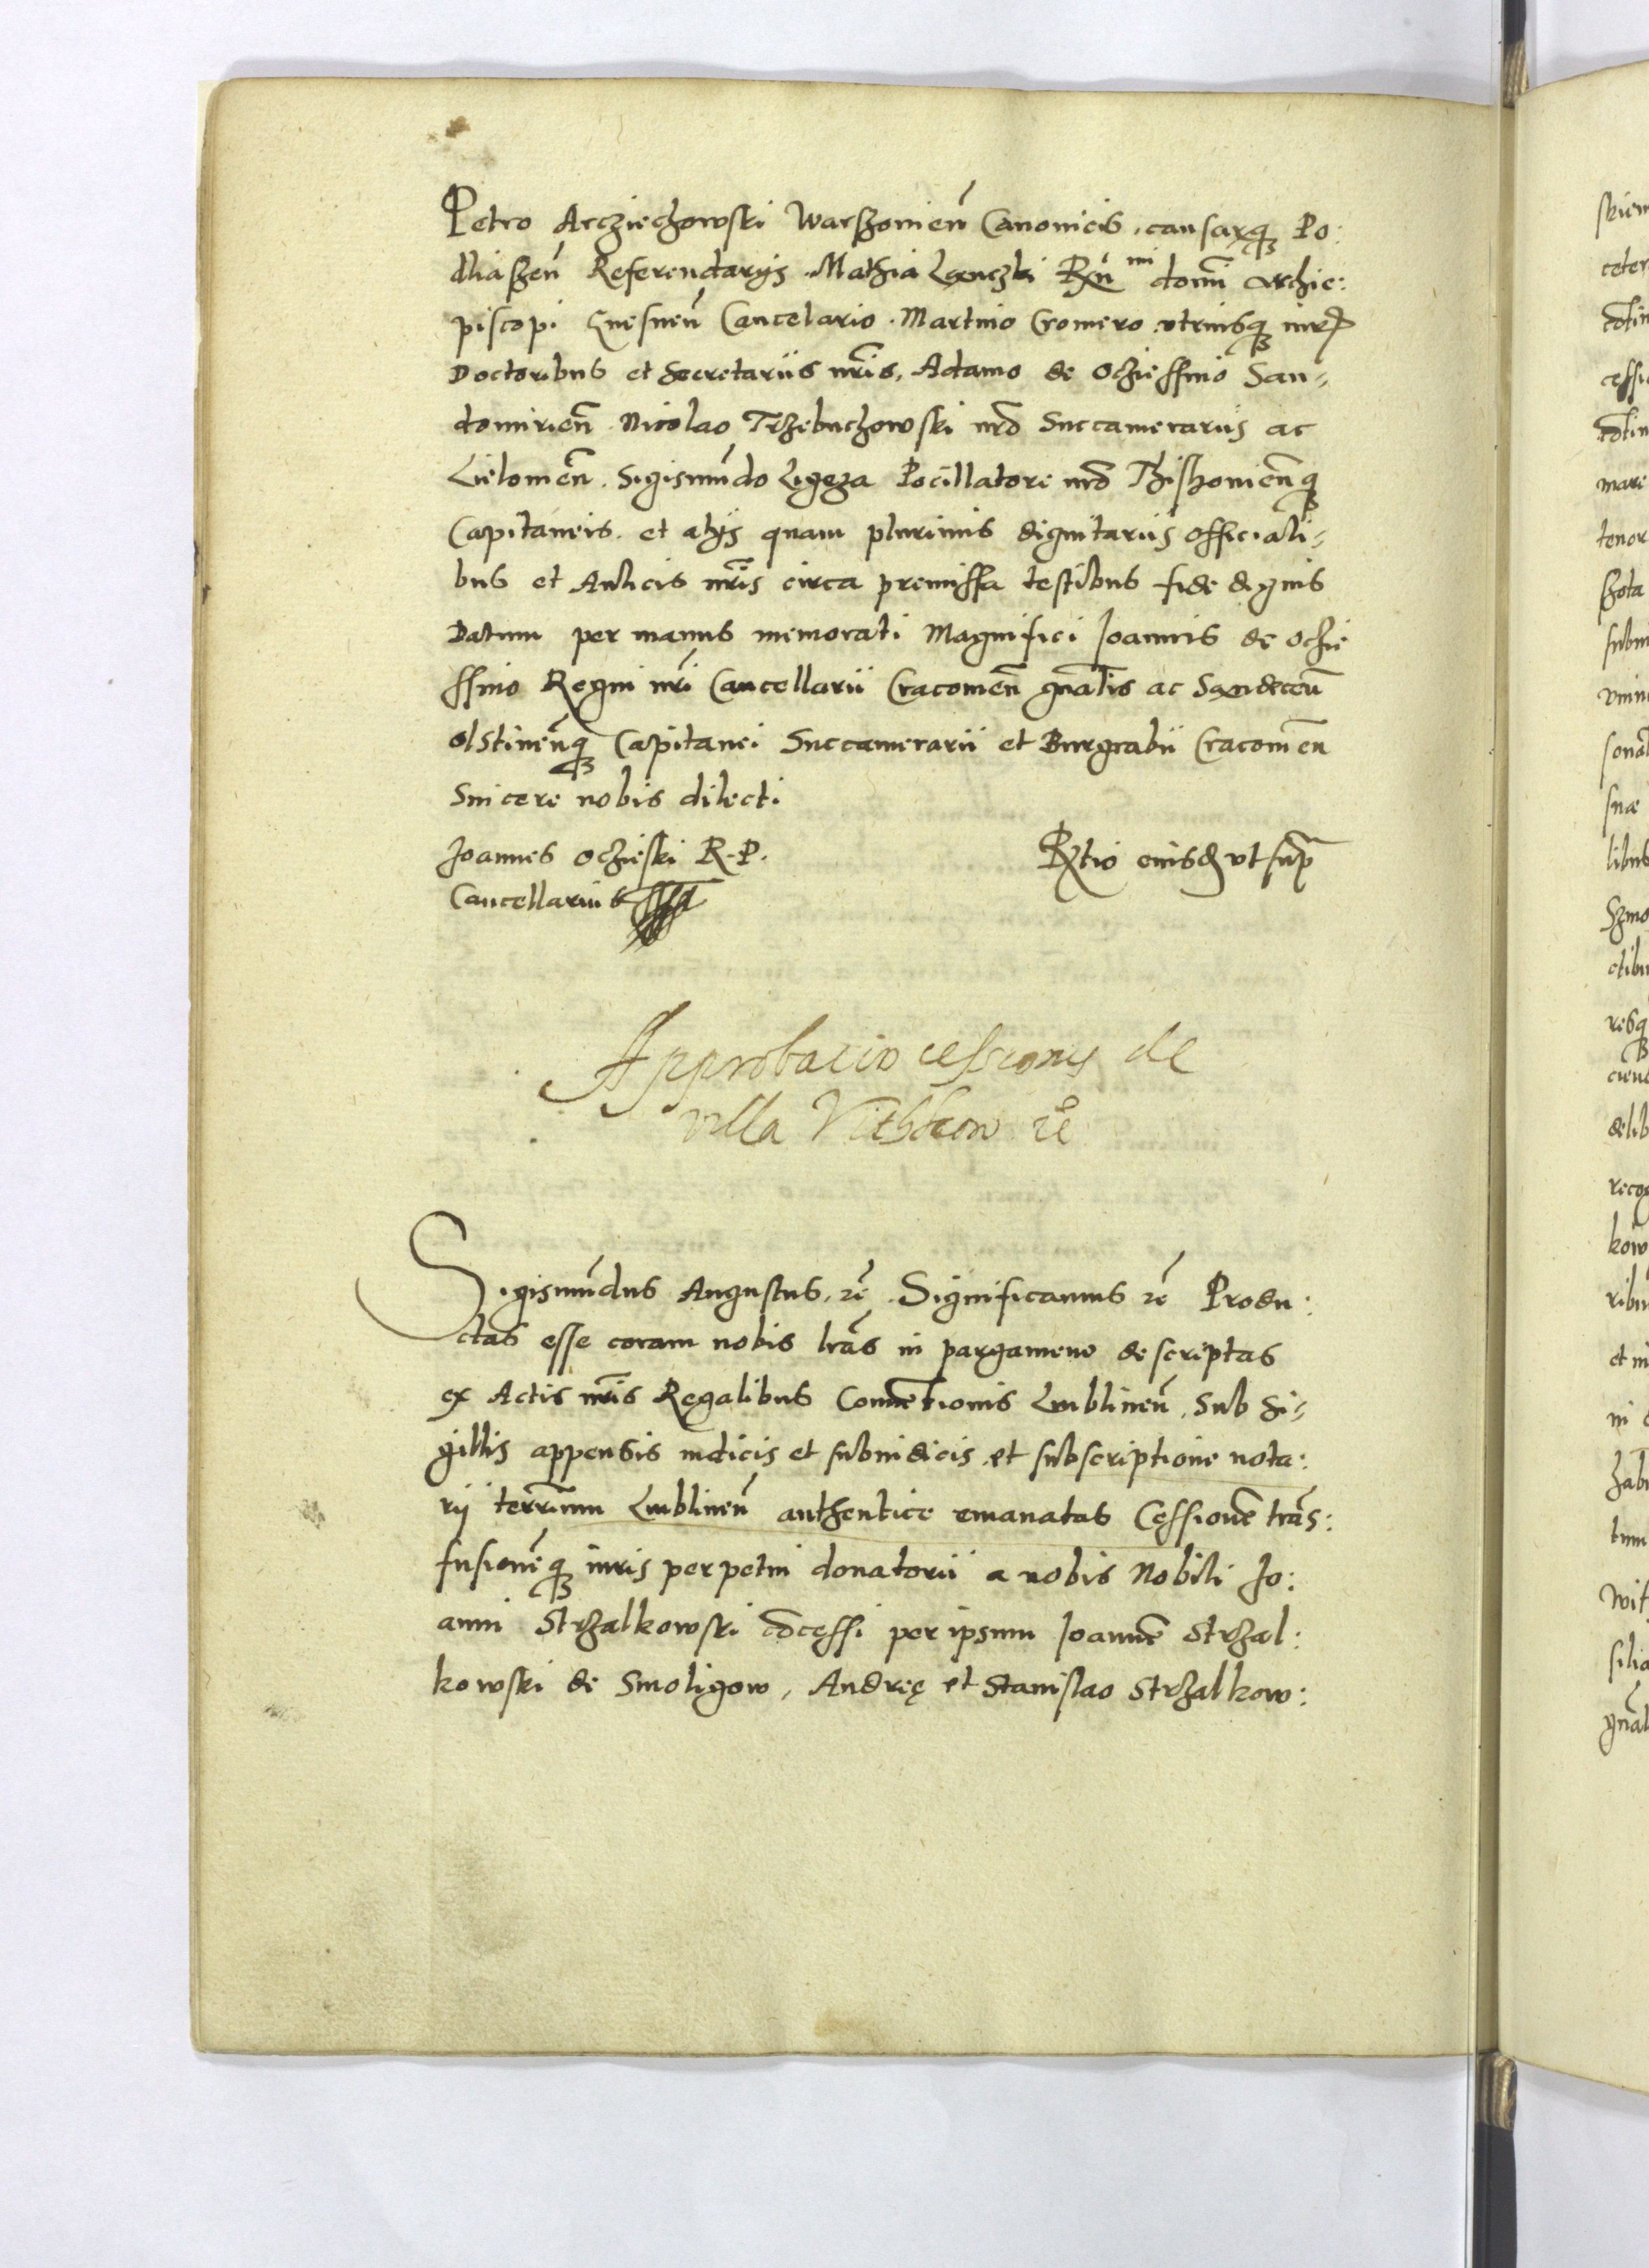 Petro Arcziechowski Warszouien̄ Canonicis, causarq̧ Po:
dliaszen̄ Referendarijs. Mathia Lęnczki Rn̄mi domī Archie:
piscopi Gnesnen̄ Cancelario. Martino Cromero vtriusq̧ iur
Doctoribus et Secretariis nr̄is, Adamo de Oczieschino San-
domirien̄. Nicolao Trzebuchowski nr̄o Succamerariis ac
Vielonien̄. Sigismūdo Ligęza Pocillatore nr̄o Thishouien̄q̧
Capitaneis. et alijs quam plurimis dignitariis officiali-
bus et Aulicis nr̄is circa premissa testibus fide dignis
Datum per manus memorati Magnifici Joannis de Oczie
ssino Regni nr̄i Cancellarii Cracouien̄ gn̄alis ac Sandecen̄
Olstinen̄q̧ Capitanei Succamerarii et Burgrabii Cracouien
Sincere nobis dilecti
Joannes Oczieski R. P.
Cancellarius sst
Rtio eiusd vt supr̄
Approbatio cessionis de
villa
Sigismūdus Augustus, ec̄. Significamus ec̄ Produ:
ctas esse coram nobis lrās in pargameno descriptas
ex Actis nr̄is Regalibus Conuētionis Lublinen̄, Sub Si-
gillis appensis iudicis et subiudicis, et subscriptione nota:
rij terrarum Lublinen̄ authentice emanatas Cessionē trās:
fusionēq̧ iuris perpetui donatorii a nobis Nobili Jo:
anni Strzalkowski cōcessi per ipsum Joannē Strzal:
kowski de Smoligow, Andreę et Stanislao Strzalkow: